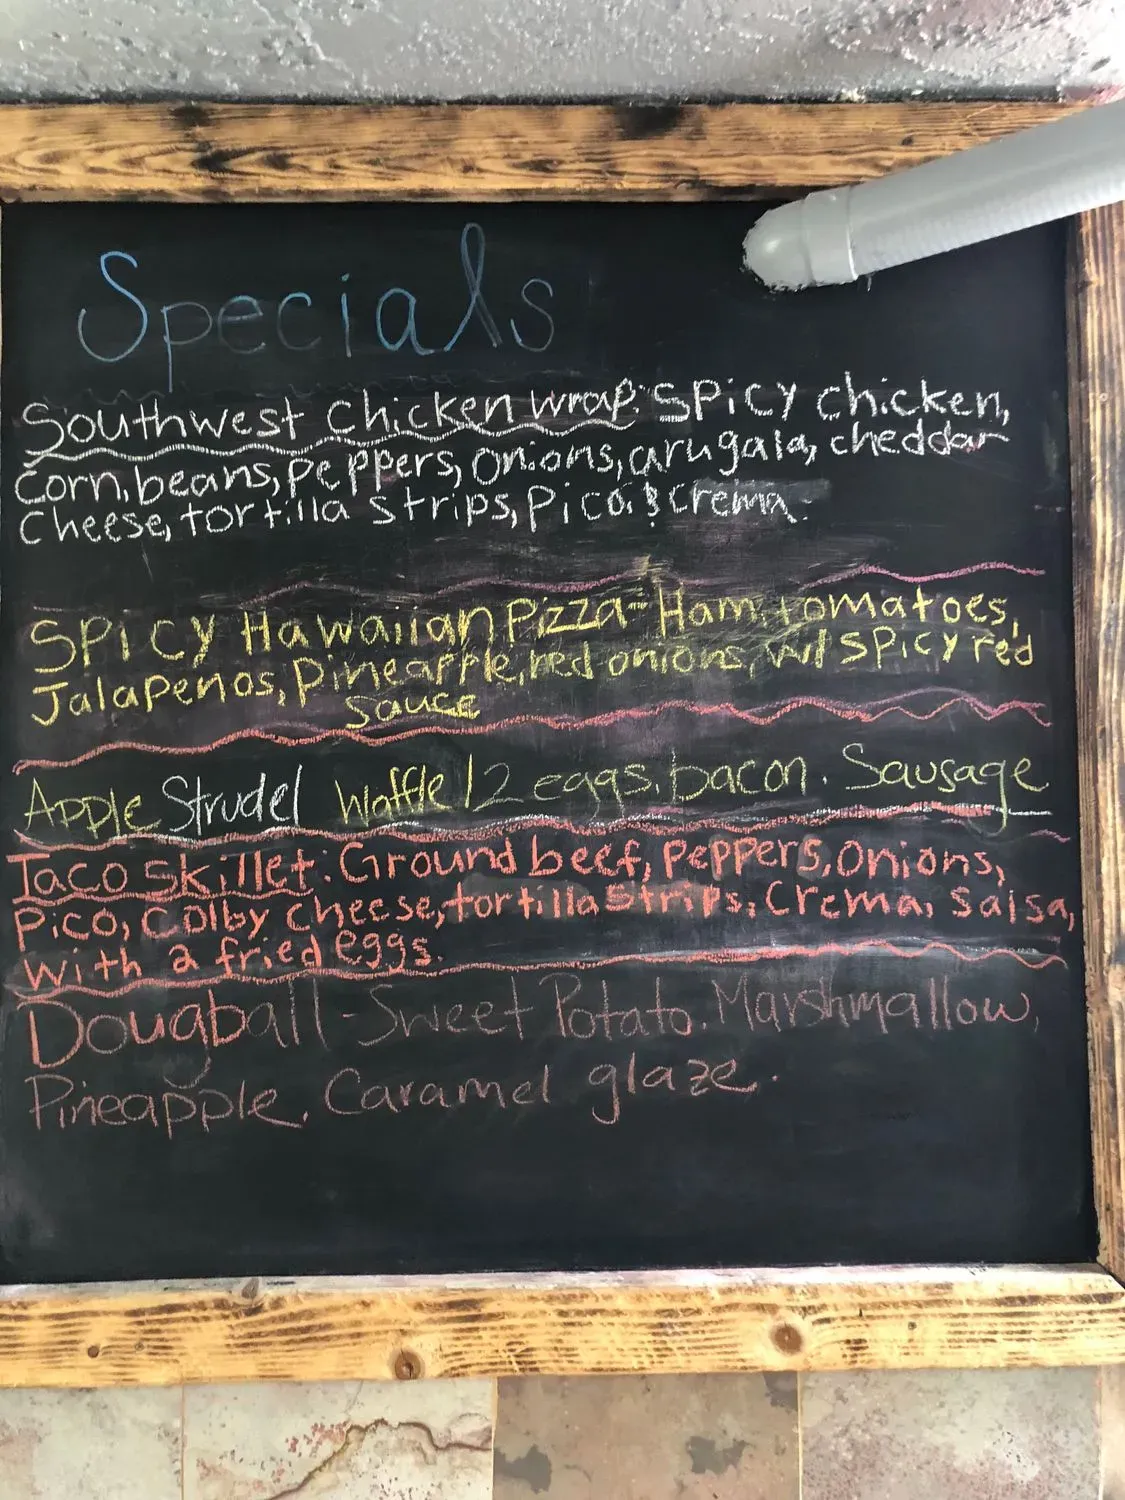 Specials
Southwest chicken wrap: Spicy chicken,
Corn, beans, peppers, onions, arugala, cheddar
Cheese, tortilla strips, Pico & crema.
Spicy Hawaiian Pizza - Ham, tomatoes,
Jalapenos, Pineapple, red onions, w/ spicy red
sauce
Apple Strudel Waffle / 2 eggs, bacon. Sausage
Taco Skillet: Ground beef, Peppers, Onions,
Pico, Colby cheese, tortilla strips, Crema, Salsa,
with a fried eggs.
Dougball - Sweet Potato. Marshmallow,
Pineapple, Caramel glaze.